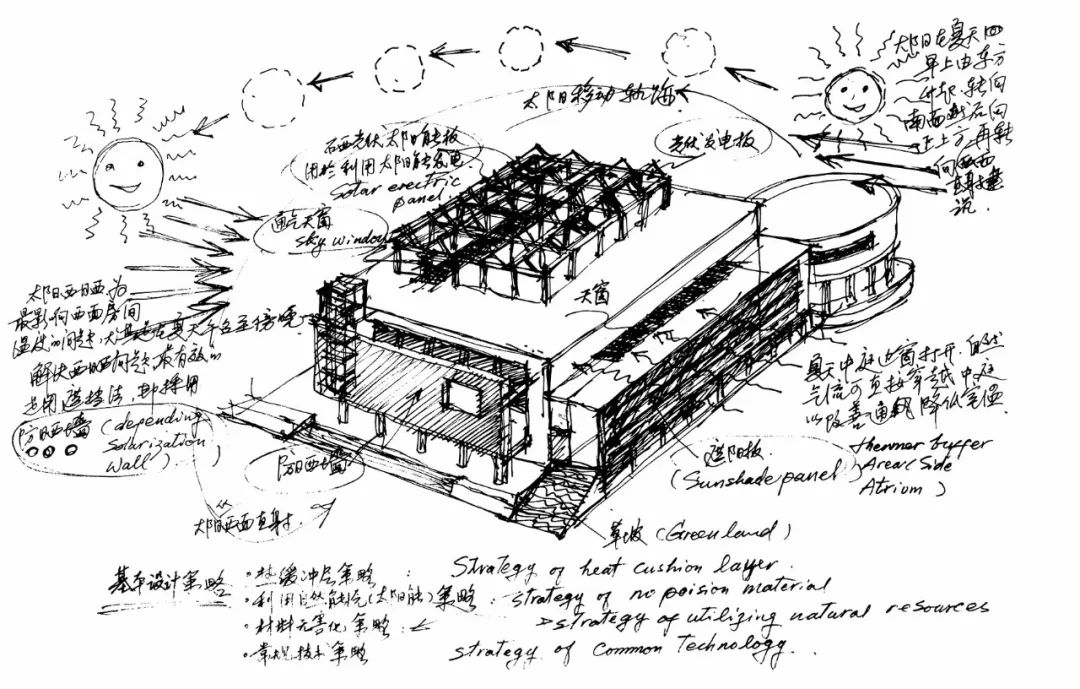 太阳移动轨迹
太阳在夏天
早上由东方
升起.转向
南面
正上方再转
向西
光伏发电板
太阳能板
用於利用太阳能发电.
Solar erectric
panel
通气天窗
sky window
天窗
太阳西晒为
最影响西面房间
温度的问题,尤其是在夏天午后至傍晚
解决西晒问题最有效的
是用遮挡法,即採用
防晒墙 (depending
Solarization
Wall)
防晒墙
太阳西面直射
夏天中庭边窗打开.自然
气流可直接穿越中庭
以改善通风降低室温
thermer buffer
Area (Side
Atriom)
遮阳板
(Sunshade panel)
草坡 (Green land)
基本设计策略
•热缓冲层策略: Strategy of heat cushion layer.
•利用自然能源(太阳能)策略: strategy of no poision material
•材料无害化策略: strategy of utilizing natural resources
•常规技术策略 strategy of Common Technology.